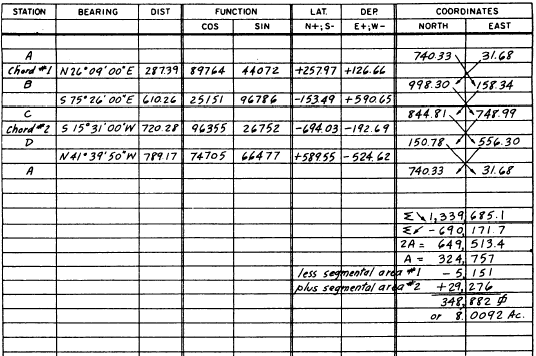 STATION BEARING DIST FUNCTION LAT. DEP. COORDINATES
COS SIN N+;S- E+;W- NORTH EAST
A 740.33 31.68
Chord #1 N26°09'00"E 287.39 89764 44072 +257.97 +126.66
B 998.30 158.34
S75°26'00"E 610.26 25151 96786 -153.49 +590.65
C 844.81 748.99
Chord #2 S15°31'00"W 720.28 96355 26752 -694.03 -192.69
D 150.78 556.30
N41°39'50"W 789.17 74705 66477 +589.55 -524.62
A 740.33 31.68
Σ↘ 1,339,685.1
Σ↙ -690,171.7
2A = 649,513.4
A = 324,757
less segmental area #1 -5,151
plus segmental area #2 +29,276
348,882 ⏍
or 8.0092 Ac.